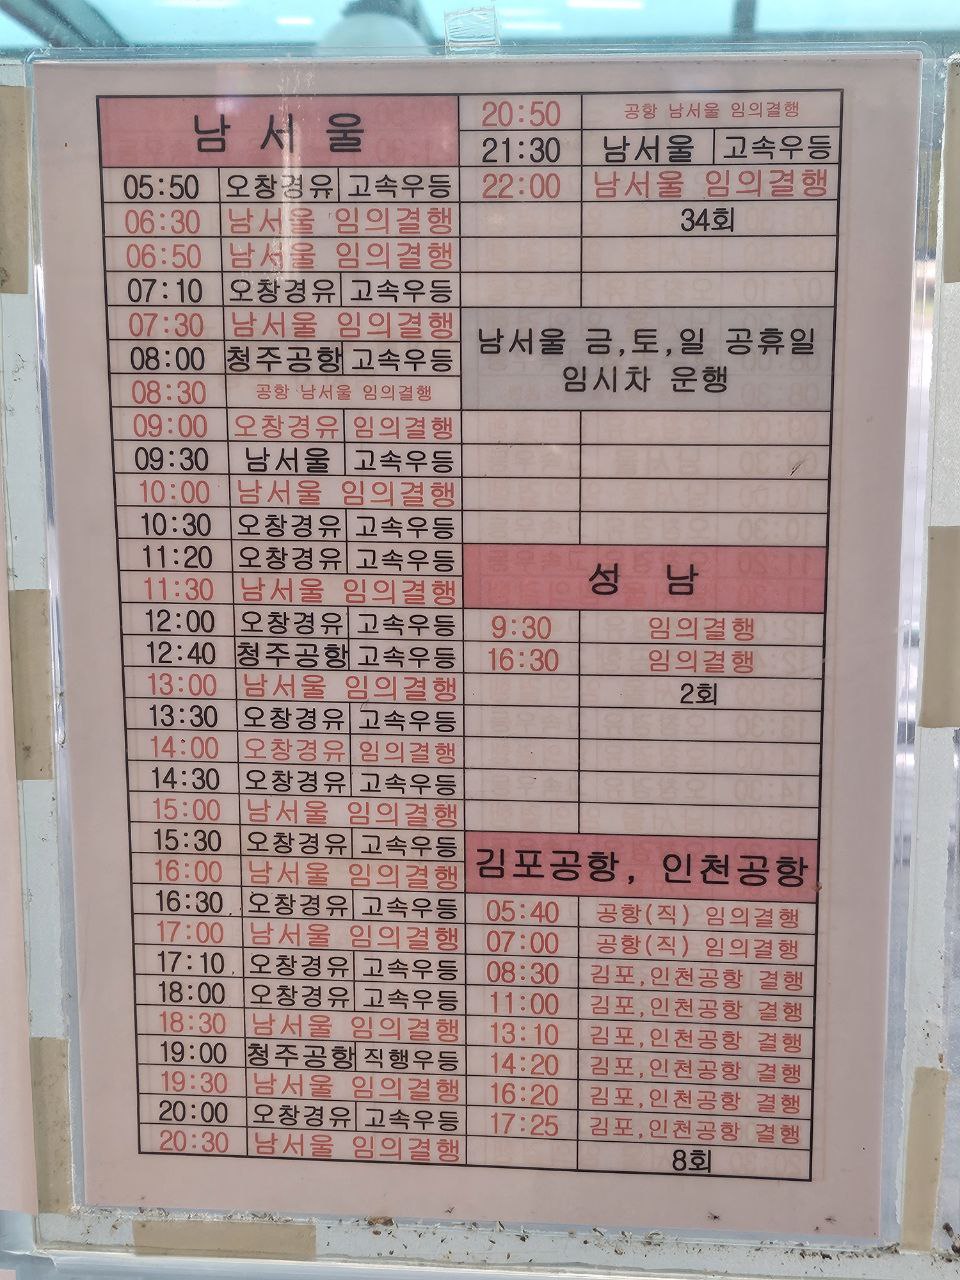 남 서 울
05:50 오창경유 고속우등
06:30 남서울 임의결행
06:50 남서울 임의결행
07:10 오창경유 고속우등
07:30 남서울 임의결행
08:00 청주공항 고속우등
08:30 공항 남서울 임의결행
09:00 오창경유 임의결행
09:30 남서울 고속우등
10:00 남서울 임의결행
10:30 오창경유 고속우등
11:20 오창경유 고속우등
11:30 남서울 임의결행
12:00 오창경유 고속우등
12:40 청주공항 고속우등
13:00 남서울 임의결행
13:30 오창경유 고속우등
14:00 오창경유 임의결행
14:30 오창경유 고속우등
15:00 남서울 임의결행
15:30 오창경유 고속우등
16:00 남서울 임의결행
16:30 오창경유 고속우등
17:00 남서울 임의결행
17:10 오창경유 고속우등
18:00 오창경유 고속우등
18:30 남서울 임의결행
19:00 청주공항 직행우등
19:30 남서울 임의결행
20:00 오창경유 고속우등
20:30 남서울 임의결행
20:50 공항 남서울 임의결행
21:30 남서울 고속우등
22:00 남서울 임의결행
34회
남서울 금,토,일 공휴일
임시차 운행
성 남
9:30 임의결행
16:30 임의결행
2회
김포공항, 인천공항
05:40 공항(직) 임의결행
07:00 공항(직) 임의결행
08:30 김포,인천공항 결행
11:00 김포,인천공항 결행
13:10 김포,인천공항 결행
14:20 김포,인천공항 결행
16:20 김포,인천공항 결행
17:25 김포,인천공항 결행
8회